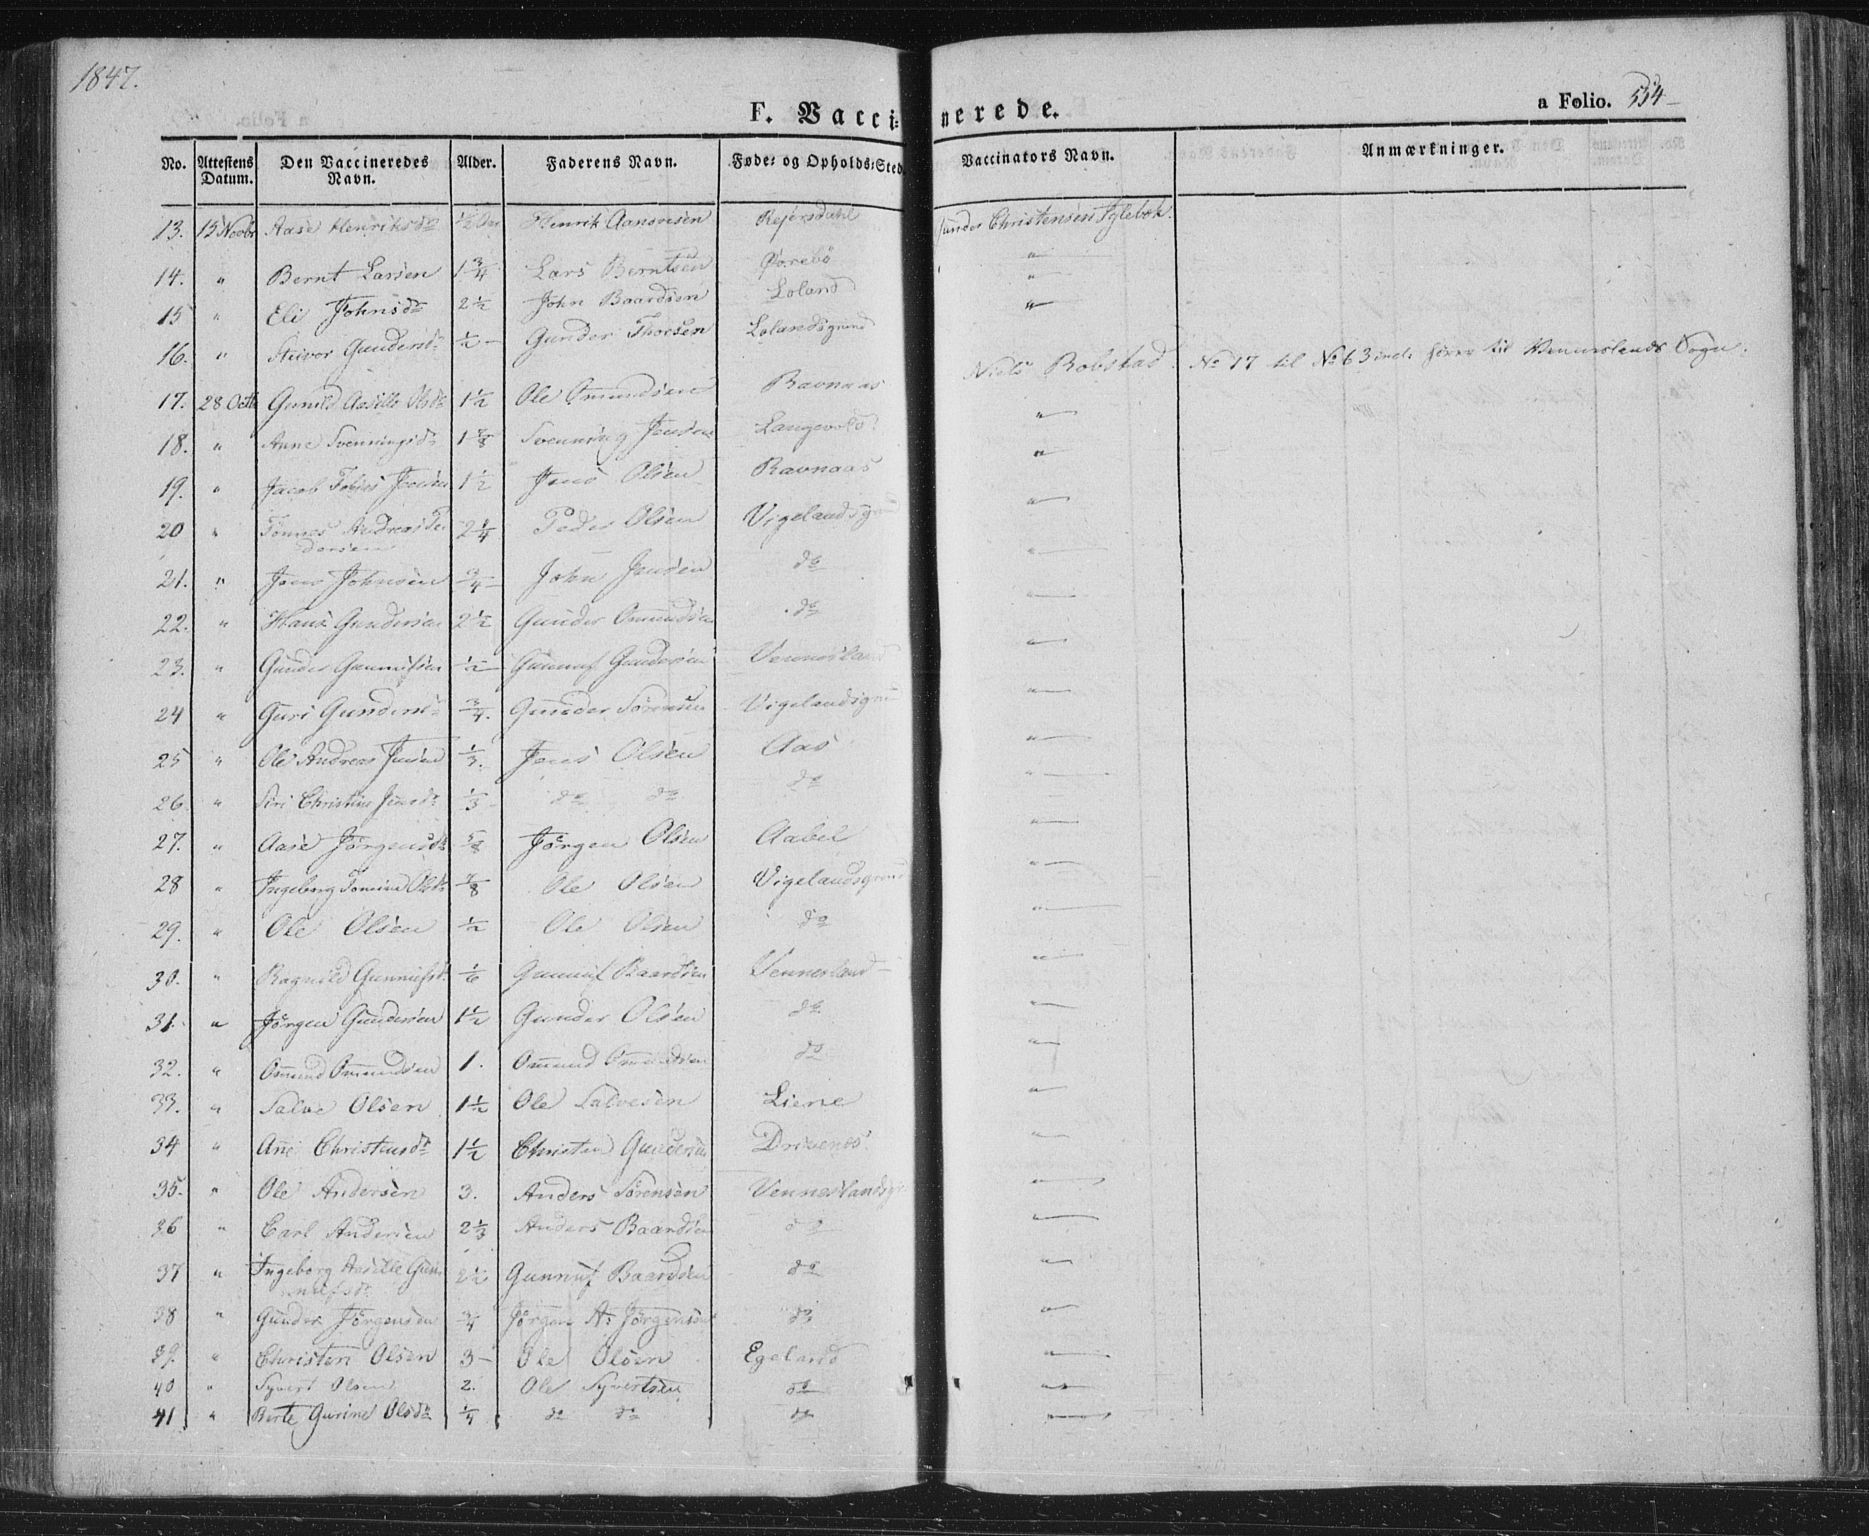 1847.
F. Vaccinerede.
a Folio. 554
No. Attestens Datum. Den Vaccineredes Navn. Alder. Faderens Navn. Føde- og Opholds-Sted. Vaccinators Navn. Anmærkninger.
13. 15 Novbr Aase Henriksdr Henrik Aanonsen Reiersdahl Gunder Christensen
14. " Bernt Larsen 1 3/4 Lars Berntsen Øvrebø "
15 " Eli Johnsdr 2 1/2 John Baardsen Loland "
16. " Gundersdr 1/2 - Gunder Thorsen Lolandsgrund "
17. 28 Octbr Gunild Aasille Olsdr 1 1/2 Ole Omundsen Ravnaas Niels Robstad. No 17 til No 63 incl. hører til Vennerslands Sogn.
18. " Anne Svenningsdr Svenning Jensen "
19. " Jacob Tobias Jensen 1 1/2 Jens Olsen Ravnaas "
20 " Tønnes Andreas Pedersen 2 1/4 Peder Olsen Vigelandsgrund "
21. " Jens Johnsen 3/4 John Jensen do "
22. " Hans Gundersen 2 1/2 Gunder Omundsen do "
23. " Gunder Gunnufsen 1/2 - Gunnuf Gundersen Vennesland "
24 " Guri Gundersdr 3/4. Gunder Sørensen Vigelandsgrund "
25 " Ole Andreas Jensen 1/3. Jens Olsen Aas "
26. " Siri Christine Jensdr 1/3 - do do do "
27. " Aase Jørgensdr Jørgen Olsen Aabel "
28 " Ingeborg Tomine Olsdr Ole Olsen Vigelandsgrund "
29. " Ole Olsen 1/2 Ole Olsen do "
30. " Ragnild Gunnufsdr 1/6 Gunnuf Baardsen Vennesland "
31. " Jørgen Gundersen 1 1/2 Gunder Olsen do "
32. " Omund Omundsen 1. Omund Omundsen do "
33. " Salve Olsen 1 1/2 Ole Salvesen Liene "
34 " Ane Christensdr 1 1/2 Christen Gundersen Drivenes "
35. " Ole Andersen 3. Anders Sørensen Venneslandsgr "
36 " Carl Andersen 2 1/3 Anders Baardsen do "
37 " Ingeborg Aasille Gunnufsdr 2 1/2 Gunnuf Baardsen do "
38 " Gunder Jørgensen 3/4 Jørgen As Jørgensen do "
39. " Christen Olsen 3 - Ole Olsen Egeland "
40 " Syvert Olsen 2. Ole Syvertsen do "
41 " Berte Gurine Olsdr 1/4 do do do "